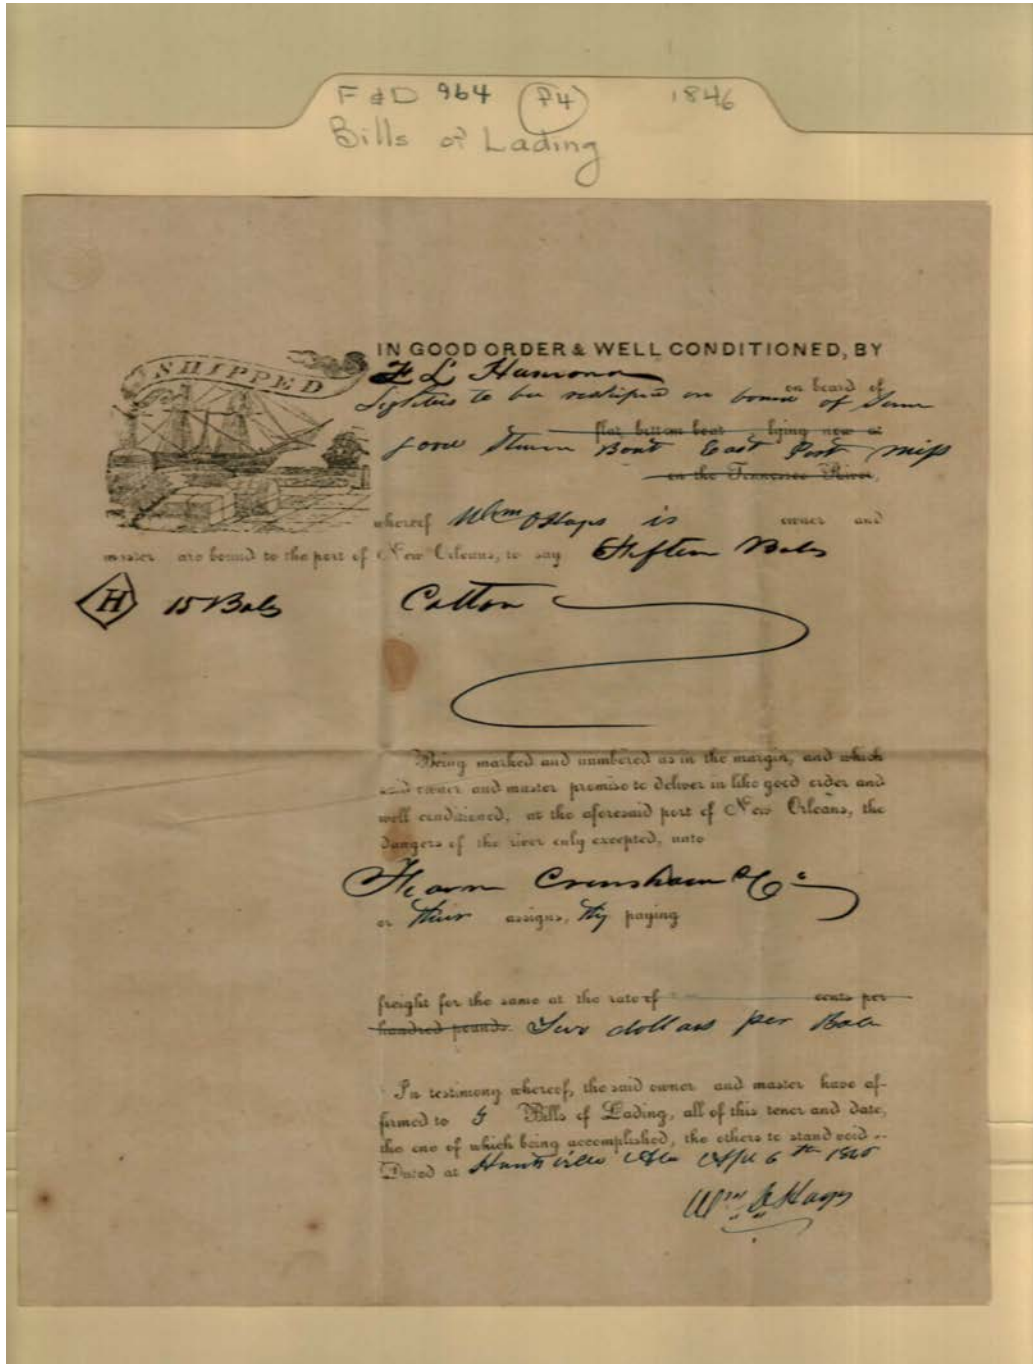 F & D 964 P4 1846
Bills of Lading
SHIPPED
IN GOOD ORDER & WELL CONDITIONED, BY
F L Hamond
on board of
to be on board of
flat bottom boat, lying now at
Good Steam Boat East Port Miss
on the Tennessee River,
whereof Wm Hays is owner and
master are bound to the port of New Orleans, to say Fifteen Bales
H 15 Bales Cotton
Being marked and numbered as in the margin, and which
said owner and master promise to deliver in like good order and
well conditioned, at the aforesaid port of New Orleans, the
dangers of the river only excepted, unto
Fearn Crenshaw & Co
or their assigns, they paying
freight for the same at the rate of cents per
hundred pounds. Two dollars per Bale
In testimony whereof, the said owner and master have af-
firmed to Bills of Lading, all of this tenor and date,
the one of which being accomplished, the others to stand void.
Dated at Huntsville Ala Apl 6th
Wm Hays